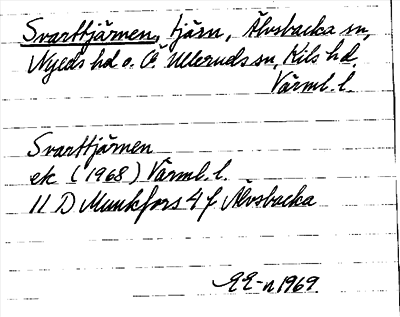 Svarttjärnen, tjärn, Älvsbacka sn,
Nyeds hd o. Ö Ulleruds sn, Kils hd,
Värml. l.
Svarttjärnen
ek (1968) Värml. l.
11 D Munkfors 4 f Älvsbacka
EE-n 1969